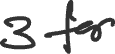 3 for